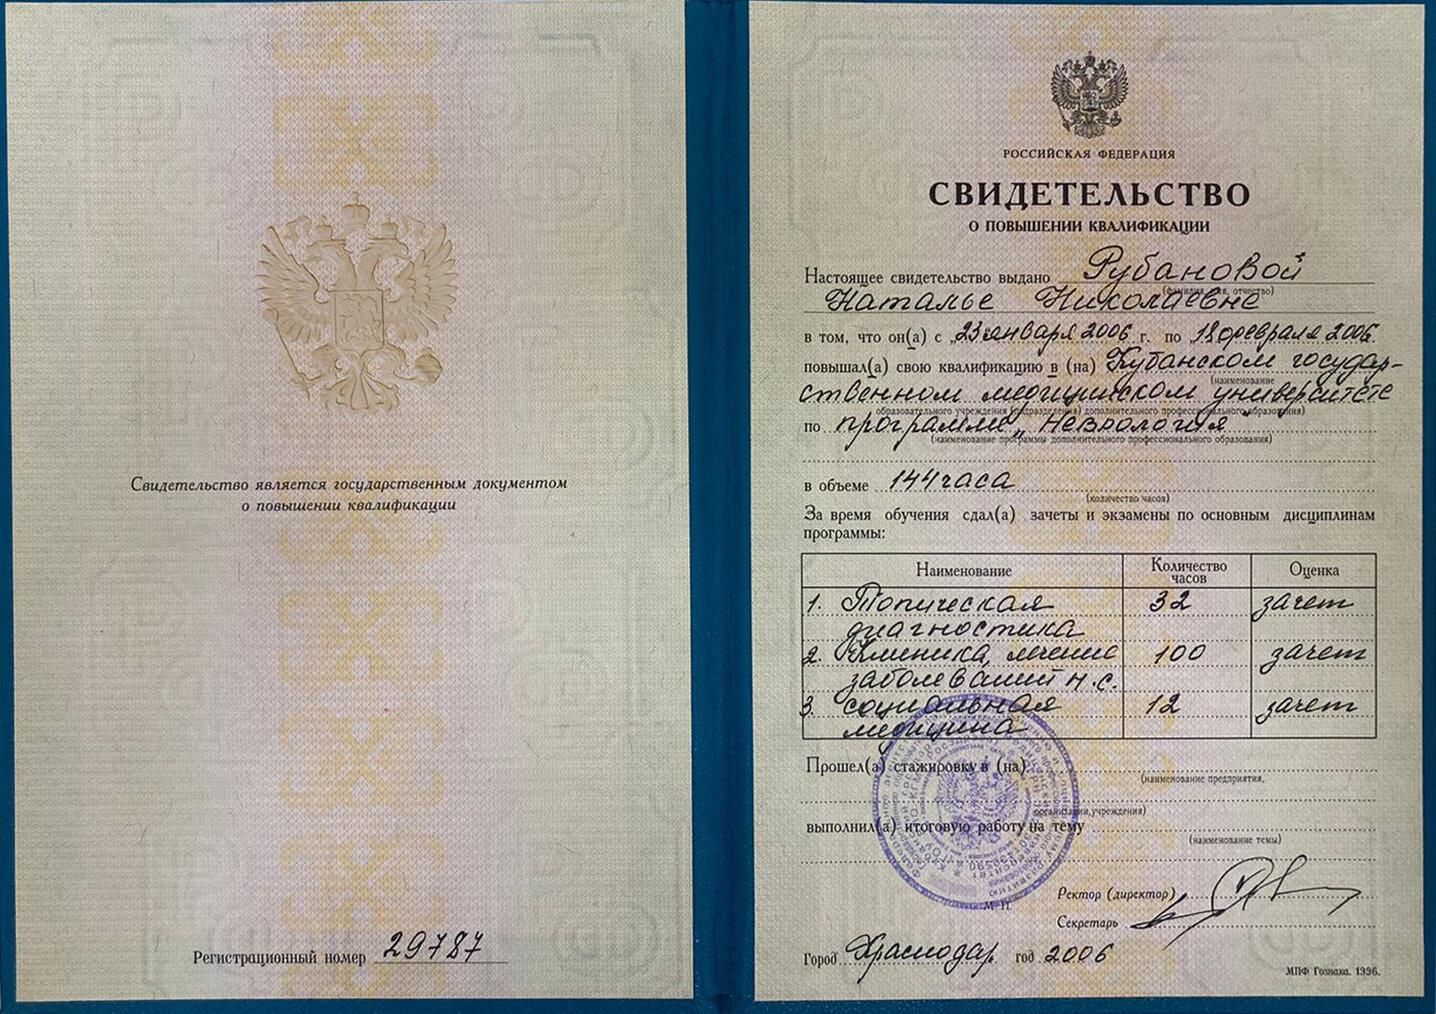 Свидетельство является государственным документом
о повышении квалификации
Регистрационный номер 29787
РОССИЙСКАЯ ФЕДЕРАЦИЯ
СВИДЕТЕЛЬСТВО
О ПОВЫШЕНИИ КВАЛИФИКАЦИИ
Настоящее свидетельство выдано Рубановой
(фамилия, имя, отчество)
Наталье Николаевне
в том, что он(а) с „23 января 2006 г. по „18 февраля 2006.
повышал(а) свою квалификацию в (на) Кубанском государ-
(наименование
ственном медицинском университете
образовательного учреждения (подразделения) дополнительного профессионального образования)
по программе „Неврология"
(наименование программы дополнительного профессионального образования)
в объеме 144 часа
(количество часов)
За время обучения сдал(а) зачеты и экзамены по основным дисциплинам
программы:
Наименование Количество часов Оценка
1. Топическая 32 зачет
диагностика
2. Клиника, лечение 100 зачет
заболеваний н.с.
3. социальная 12 зачет
медицина
Прошел(а) стажировку в (на)
(наименование предприятия,
организации, учреждения)
выполнил(а) итоговую работу на тему
(наименование темы)
М. П.
Ректор (директор)
Секретарь
Город Краснодар год 2006
МПФ Гознака. 1996.